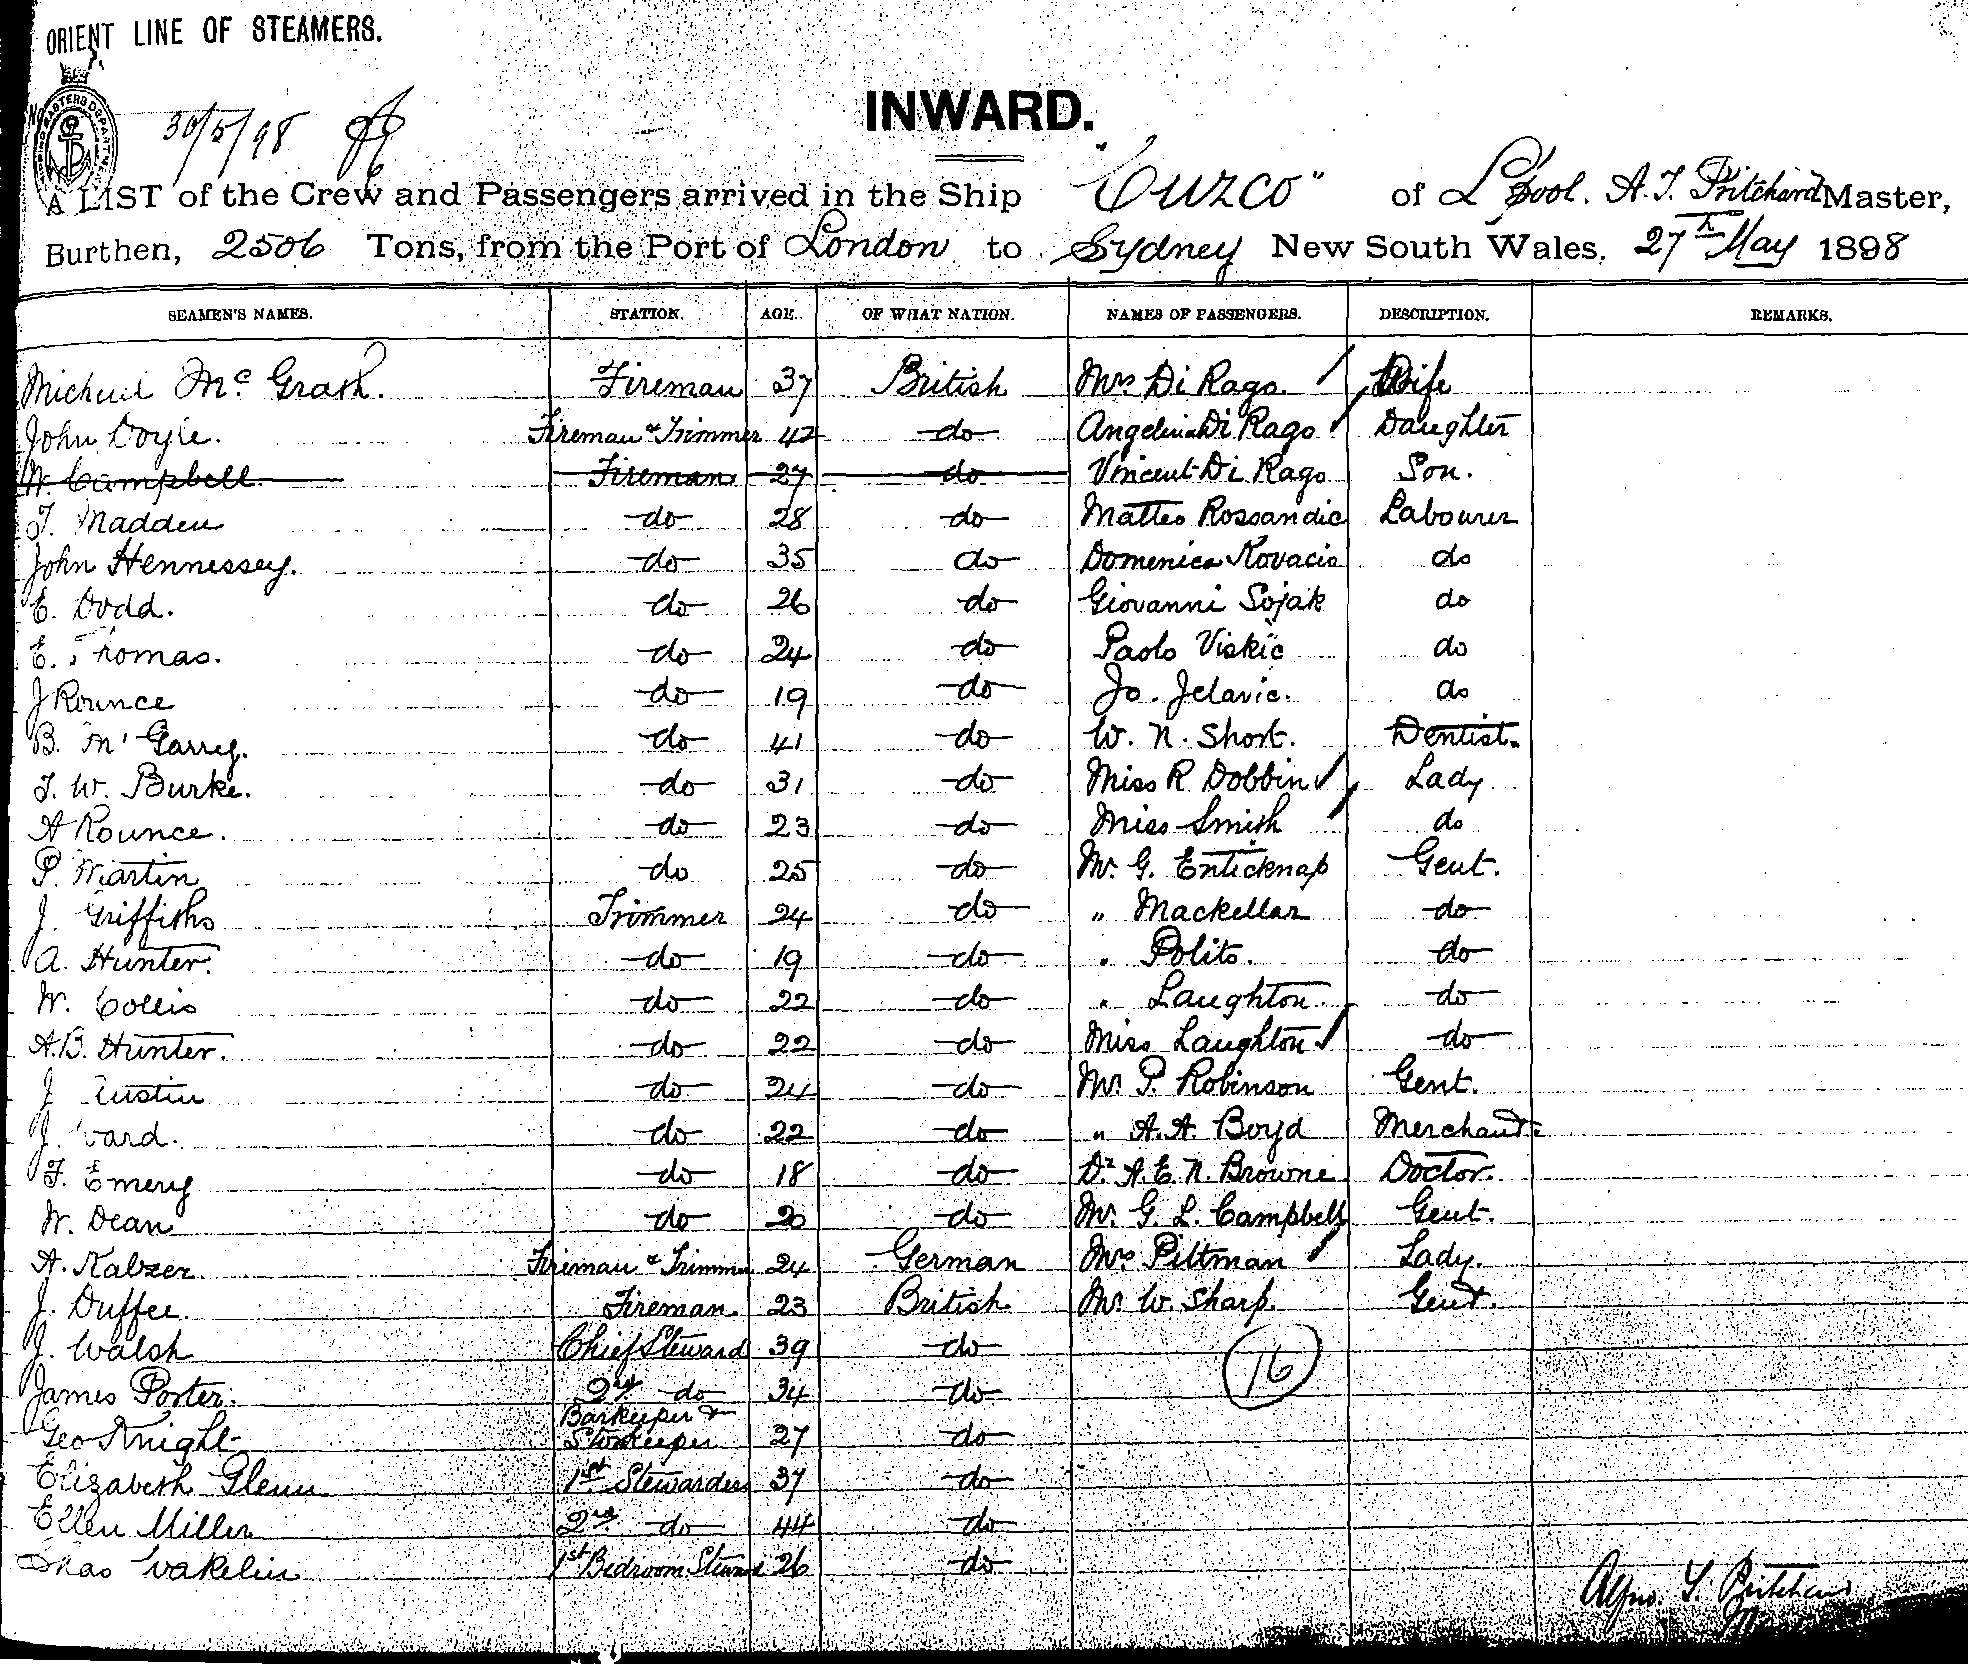 ORIENT LINE OF STEAMERS.
30/5/98
INWARD.
A LIST of the Crew and Passengers arrived in the Ship "Cuzco" of L'pool. A. J. Pritchard Master,
Burthen, 2506 Tons, from the Port of London to Sydney New South Wales, 27th May 1898
SEAMEN'S NAMES. STATION. AGE. OF WHAT NATION. NAMES OF PASSENGERS. DESCRIPTION. REMARKS.
Michael McGrath. Fireman 37 British Mrs Di Rago. Wife
John Doyle. Fireman & Trimmer 42 do Angelina Di Rago Daughter
W. Campbell. Fireman 27 do Vincent Di Rago Son.
T. Madden do 28 do Matteo Rossandic Labourer
John Hennessey. do 35 do Domenica Kovacis do
E. Dodd. do 26 do Giovanni Sojak do
E. Thomas. do 24 do Paolo Viskic do
J Rounce do 19 do Jo. Jelavic. do
B. M'Garry. do 41 do W. N. Short. Dentist.
T. W. Burke. do 31 do Miss R Dobbin Lady
A Rounce. do 23 do Miss Smith do
P. Martin do 25 do Mr. G. Enticknap Gent.
J. Griffiths Trimmer 24 do " Mackellar do
A. Hunter. do 19 do " Polito. do
W. Collis do 22 do " Laughton. do
A.B. Hunter. do 22 do Miss Laughton do
J Austin do 24 do Mr P. Robinson Gent.
J. Ward. do 22 do " A. A. Boyd Merchant.
F. Emery do 18 do Dr A. E. N. Browne Doctor.
W. Dean do 20 do Mr. G. L. Campbell Gent.
A. Kabzer. Fireman & Trimmer 24 German Mrs Pittman Lady.
J. Duffee. Fireman. 23 British Mr W. Sharp. Gent.
J. Walsh Chief Steward 39 do 16
James Porter. 2nd do 34 do
Geo Knight Barkeeper & Storekeeper 27 do
Elizabeth Glenn 1st Stewardess 37 do
Ellen Miller 2nd do 44 do
Chas Wakelin 1st Bedroom Steward 26 do
Pritchard